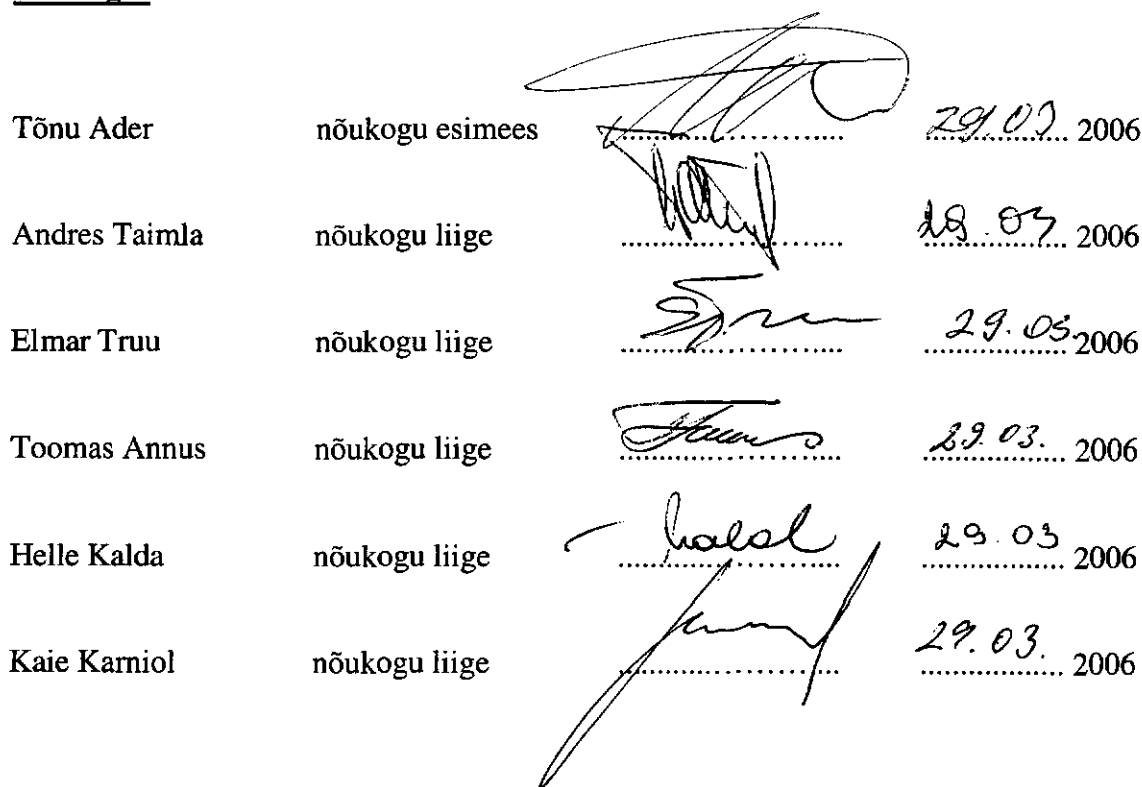 Tõnu Ader nõukogu esimees .................... 29.03 2006
Andres Taimla nõukogu liige .................... 29.03 2006
Elmar Truu nõukogu liige .................... 29.03. 2006
Toomas Annus nõukogu liige .................... 29.03. 2006
Helle Kalda nõukogu liige .................... 29.03 2006
Kaie Karniol nõukogu liige .................... 29.03. 2006